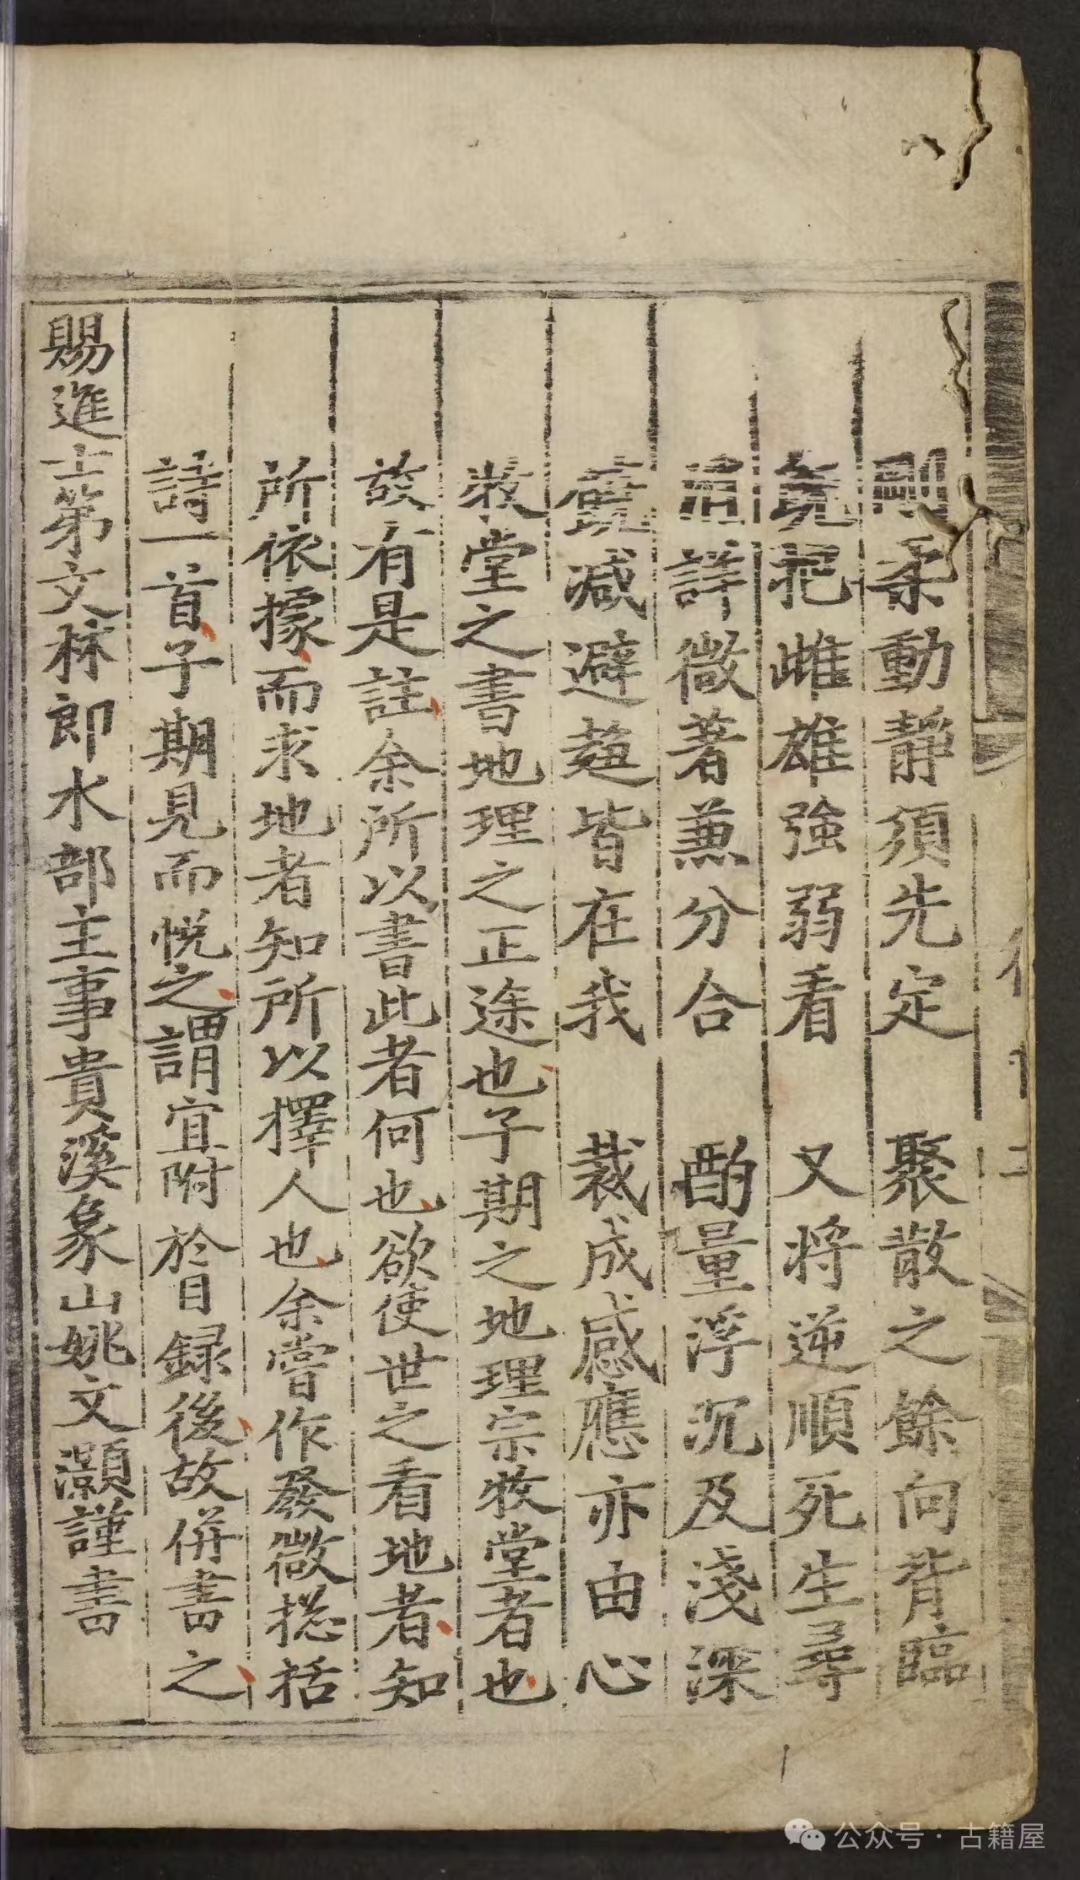 剛柔動靜須先定　聚散之餘向背臨
競把雌雄強弱看　又將逆順死生尋
詳微著兼分合　酌量浮沉及淺深
減避趨皆在我　裁成感應亦由心
牧堂之書地理之正途也子期之地理宗牧堂者也
故有是註余所以書此者何也欲使世之看地者知
所依據而求地者知所以擇人也余嘗作發微揔括
詩一首子期見而悅之謂宜附於目録後故併書之
賜進士第文林郎水部主事貴溪象山姚文灝謹書
公众号·古籍屋